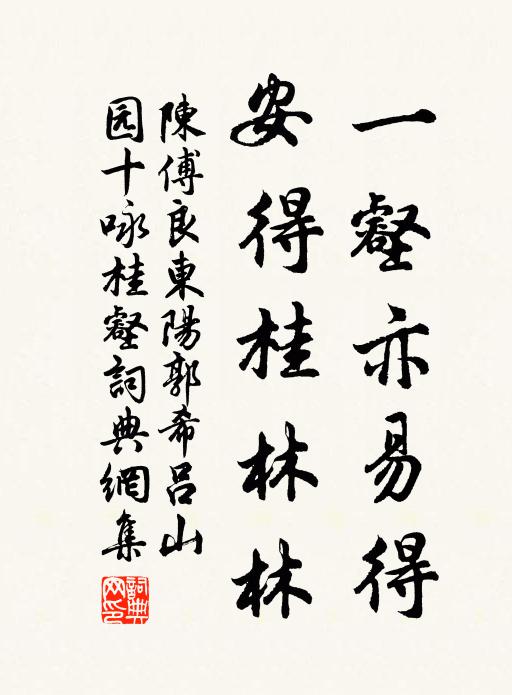 一壑亦易得
安得桂林林
陳傅良東陽郭希呂山
园十咏桂壑詞典網集